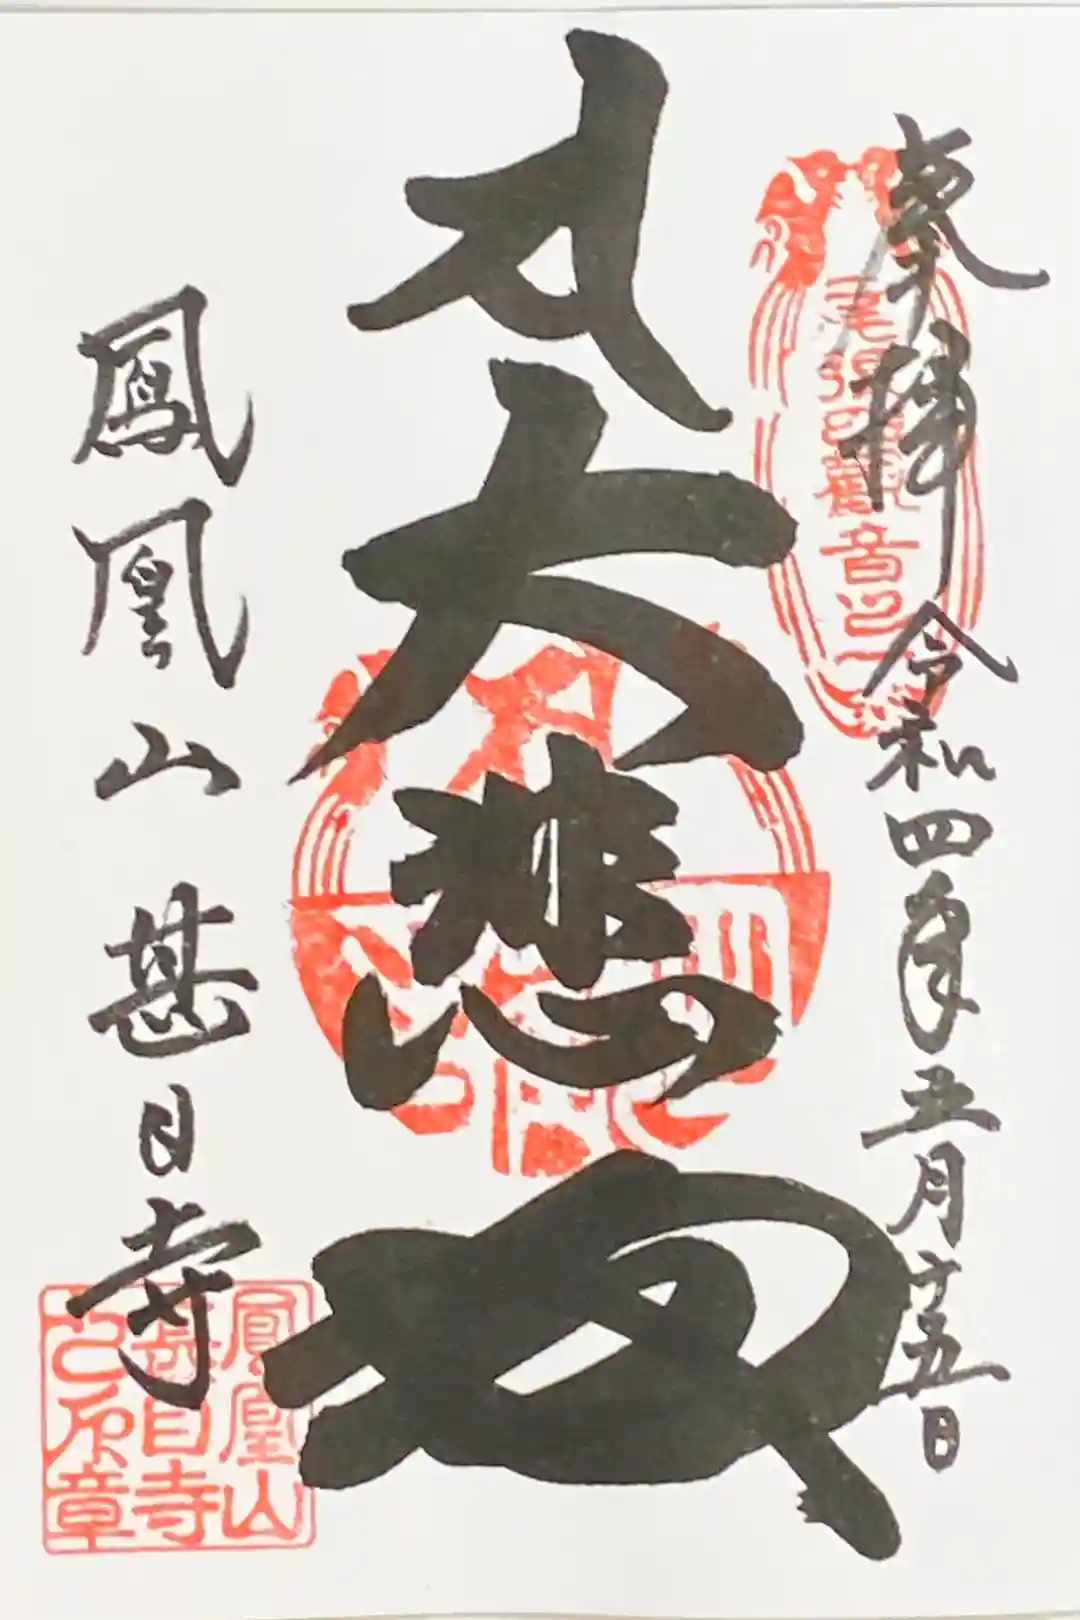 奉拝
令和四年五月廿五日
尾張四観音之一
大悲殿
鳳凰山甚目寺
鳳凰山
甚目寺
之印章